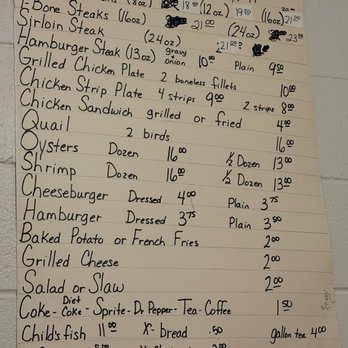 (8oz) 18 00 (12oz) 19 50 (16oz) 21 00
T-Bone Steaks (16oz) 21 00
Sirloin Steak (24oz) (24oz) 23 00
Hamburger Steak (13oz) gravy + onion 10 00 Plain 9 50
Grilled Chicken Plate 2 boneless fillets 10 00
Chicken Strip Plate 4 strips 9 00 2 strips 8 00
Chicken Sandwich grilled or fried 4 00
Quail 2 birds 16 00
Oysters Dozen 16 00 1/2 Dozen 13 00
Shrimp Dozen 16 00 1/2 Dozen 13 00
Cheeseburger Dressed 4 00 Plain 3 75
Hamburger Dressed 3 75 Plain 3 50
Baked Potato or French Fries 2 00
Grilled Cheese 2 00
Salad or Slaw 2 00
Coke - Diet Coke - Sprite - Dr. Pepper - Tea - Coffee 1 50
Child's fish 11 00 X- bread .50 gallon tea 4 00